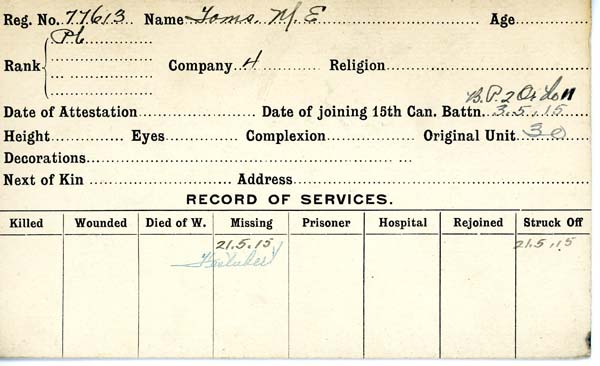 Reg. No. 77613 Name Toms, M. E Age
Pte
Rank Company 4 Religion
Date of Attestation Date of joining 15th Can. Battn. 3.5.15
Height Eyes Complexion Original Unit 30
Decorations
Next of Kin Address
RECORD OF SERVICES.
Killed Wounded Died of W. Missing Prisoner Hospital Rejoined Struck Off
21.5.15 21.5.15